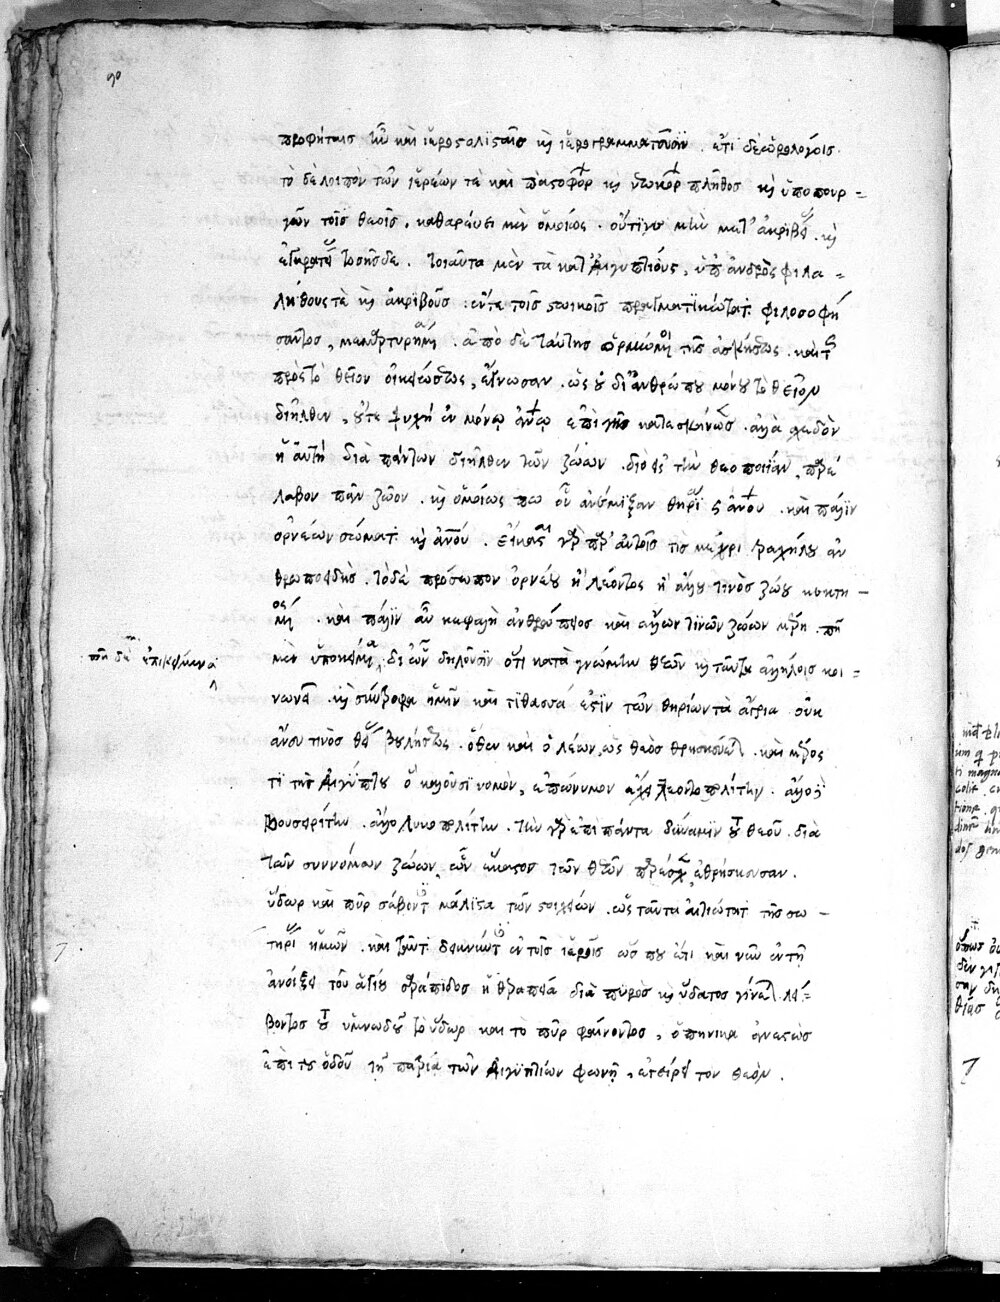 προφήταις ἦν καὶ ἱεροστολισταῖς καὶ ἱερογραμματεῦσιν. ἔτι δὲ ὡρολόγοις.
τὸ δὲ λοιπὸν τῶν ἱερέων τὲ καὶ παστοφόρων καὶ νεωκόρων πλῆθος καὶ ὑπουρ=
γῶν τοῖς θεοῖς, καθαρεύει μὲν ὁμοίως. οὔτι γε μὴν μετ' ἀκριβείας καὶ
ἐγκρατείας τοσῆσδε. τοιαῦτα μὲν τὰ κατ' Αἰγυπτίους, ὑπ' ἀνδρὸς φιλα=
λήθους τὲ καὶ ἀκριβοῦς. ἔν τε τοῖς στωικοῖς πραγματικώτατα φιλοσοφή
σαντος, μεμαρτυρημένα. ἀπὸ δὲ ταύτης ὁρμώμενοι τῆς ἀσκήσεως. καὶ τῆς
πρὸς τὸ θεῖον οἰκειώσεως, ἔγνωσαν. ὡς οὐ δι' ἀνθρώπου μόνου τὸ θεῖον
διῆλθεν, οὔτε ψυχὴ ἐν μόνῳ ἀνθρώπῳ ἐπὶ γῆς κατεσκήνωσεν. ἀλλὰ σχεδὸν
ἡ αὐτὴ διὰ πάντων διῆλθεν τῶν ζώων. διὸ εἰς τὴν θεοποιίαν, παρέ
λαβον πᾶν ζῶον. καὶ ὁμοίως που ἀνέμιξαν θηρία καὶ ἀνθρώπους. καὶ πάλιν
ὀρνέων σώματα καὶ ἀνθρώπων. εἴκασται γὰρ παρ' αὐτοῖς τις μέχρι τραχήλου ἀν
θρωποειδής. τὸ δὲ πρόσωπον ὀρνέου ἢ λέοντος ἢ ἄλλου τινὸς ζώου κεκτη-
μένος. καὶ πάλιν αὖ κεφαλὴ ἀνθρώπειος καὶ ἄλλων τινῶν ζώων μέρη. πῆ
μὲν ὑποκείμενα, πῆ δὲ ἐπικείμενα δι' ὧν δηλοῦσιν ὅτι κατὰ γνώμην θεῶν καὶ ταῦτα ἀλλήλοις κοι=
νωνεῖ. καὶ σύντροφα ἡμῖν καὶ τιθασσά ἐστιν τῶν θηρίων τὰ ἄγρια οὐκ
ἄνευ τινὸς θείας βουλήσεως. ὅθεν καὶ ὁ λέων, ὡς θεὸς θρησκεύεται. καὶ μέρος
τι τῆς Αἰγύπτου ὃ καλοῦσι νομὸν, ἐπώνυμον ἔχει λεοντοπολίτην. ἄλλο δὲ
βουσιρίτην. ἄλλο λυκοπολίτην. τὴν γὰρ ἐπὶ πάντα δύναμιν τοῦ θεοῦ. διὰ
τῶν συννόμων ζώων, ὧν ἕκαστος τῶν θεῶν παρέσχεν, ἐθρήσκευσαν.
ὕδωρ καὶ πῦρ σέβονται μάλιστα τῶν στοιχείων. ὡς ταῦτα αἰτιώτατα τῆς σω-
τηρίας ἡμῶν. καὶ ταῦτα δεικνύντες ἐν τοῖς ἱεροῖς ὥς που ἔτι καὶ νῦν ἐν τῇ
ἀνοίξει τοῦ ἁγίου σαράπιδος ἡ θεραπεία διὰ πυρὸς καὶ ὕδατος γίνεται. λεί=
βοντος τοῦ ὑμνωδοῦ τὸ ὕδωρ καὶ τὸ πῦρ φαίνοντος, ὁπηνίκα ἑστὼς
ἐπὶ τοῦ ὁδοῦ τῇ πατρίᾳ τῶν Αἰγυπτίων φωνῇ, ἐγείρει τὸν θεόν.